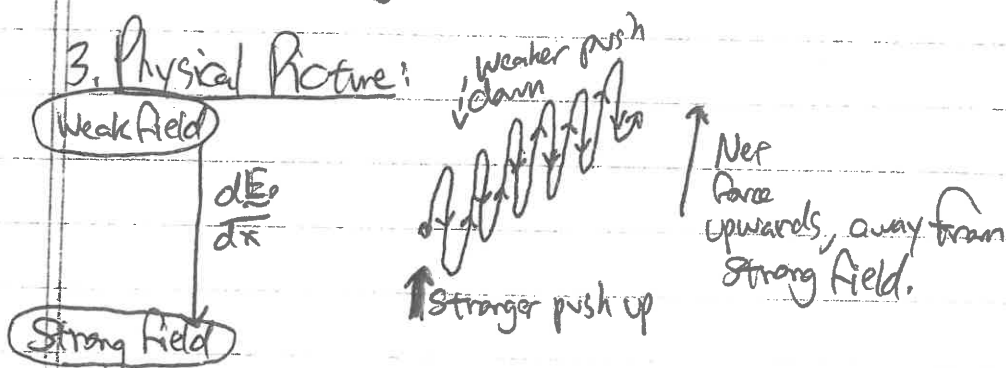 3. Physical Picture:
Weak field
dE₀
dx
Strong field
Weaker push
down
Stronger push up
Net
force
upwards, away from
strong field.